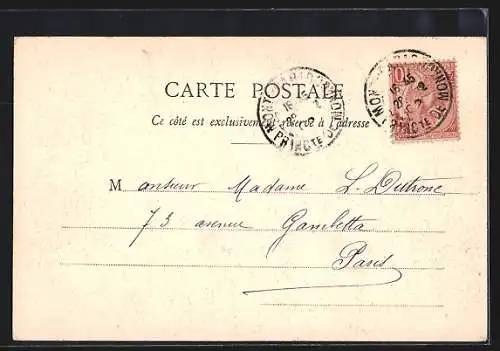 CARTE POSTALE
Ce côté est exclusivement réservé à l'adresse
Monsieur Madame L. Dutrône
73 avenue Gambetta
Paris
MONTE-CARLO
PRINCTE DE MONACO
10